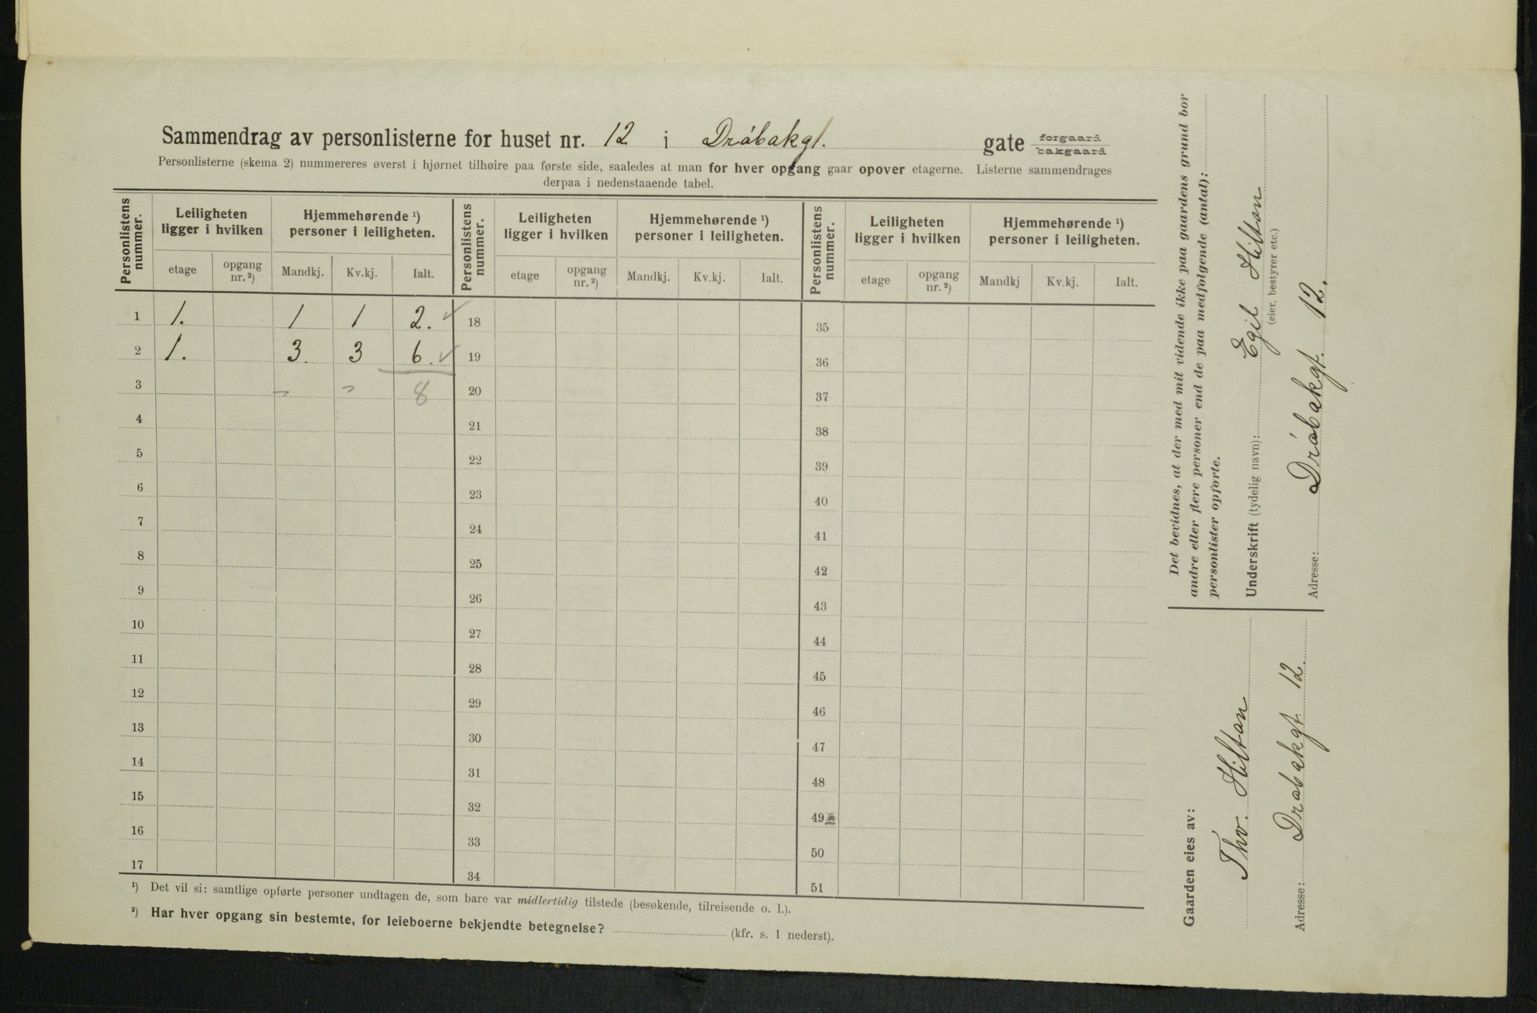 Sammendrag av personlisterne for huset nr. 12 i Drøbakgt. gate forgaard bakgaard
Personlisterne (skema 2) nummereres øverst i hjørnet tilhøire paa første side, saaledes at man for hver opgang gaar opover etagerne. Listerne sammendrages
derpaa i nedenstaaende tabel.
Personlistens nummer.
Leiligheten ligger i hvilken
Hjemmehørende ¹) personer i leiligheten.
Personlistens nummer.
Leiligheten ligger i hvilken
Hjemmehørende ¹) personer i leiligheten.
Personlistens nummer.
Leiligheten ligger i hvilken
Hjemmehørende ¹) personer i leiligheten.
etage opgang nr. ²) Mandkj. Kv.kj. Ialt. etage opgang nr. ²) Mandkj. Kv.kj. Ialt. etage opgang nr. ²) Mandkj Kv.kj. Ialt.
1 1. 1 1 2. ✓ 18 35
2 1. 3. 3 6. ✓ 19 36
3 8 20 37
4 21 38
5 22 39
6 23 40
7 24 41
8 25 42
9 26 43
10 27 44
11 28 45
12 29 46
13 30 47
14 31 48
15 32 49
16 33 50
17 34 51
¹) Det vil si: samtlige opførte personer undtagen de, som bare var midlertidig tilstede (besøkende, tilreisende o. l.).
²) Har hver opgang sin bestemte, for leieboerne bekjendte betegnelse? (kfr. s. 1 nederst).
Det bevidnes, at der med mit vidende ikke paa gaardens grund bor
andre eller flere personer end de paa medfølgende (antal):
personlister opførte.
Underskrift (tydelig navn): Egil Hilton
(eier, bestyrer etc.)
Adresse: Drøbakgt. 12.
Gaarden eies av:
Thv. Hilton
Adresse: Drøbakgt 12.